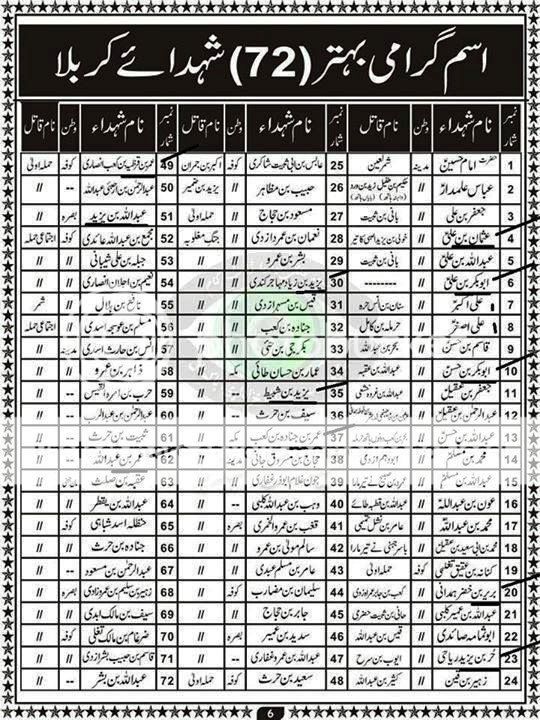 اسم گرامی بہتر (72) شہدائے کربلا
نمبر شمار نام شہداء وطن نام قاتل نمبر شمار نام شہداء وطن نام قاتل نمبر شمار نام شہداء وطن نام قاتل
1 حضرت امام حسینؑ مدینہ شمر لعین 25 عابس بن ابی شبیب شاکری کوفہ 49 بن کعب انصاری کوفہ حملہ اولی
2 عباس علمدارؑ // 26 حبیب بن مظاہر // 50 // //
3 جعفر بن علی // ہانی بن ثبیت 27 مسعود بن حجاج // حملہ اولی 51 عبداللہ بن یزید بصرہ //
4 عثمان بن علی // 28 نعمان بن عمرو ازدی // جنگ مغلوبہ 52 مجمع بن عبداللہ عائذی کوفہ اجتماعی حملہ
5 عبداللہ بن علی // ہانی بن ثبیت 29 بشر بن عمرو // // 53 جبلہ بن علی شیبانی // //
6 ابوبکر بن علی // -------- 30 یزید بن زیاد مہاجر کندی // // 54 نعیم بن عجلان انصاری // //
7 علی اکبرؑ // 31 // // 55 نافع بن ہلال // شمر
8 علی اصغرؑ // حرملہ بن کاہل 32 جنادہ بن کعب // // 56 مسلم بن عوسجہ اسدی // اجتماعی حملہ
9 قاسم بن حسن // 33 بکر بن حی // // 57 انس بن حارث اسدی مدینہ //
10 ابوبکر بن حسن // عبداللہ بن عقبہ 34 عمار بن حسان طائی // // 58 --- //
11 جعفر بن عقیل // 35 یزید بن // // 59 -- //
12 عبدالرحمن بن عقیل // 36 سیف بن حرث // // 60 -- //
13 عبداللہ بن حسن // 37 عمر بن جنادہ بن کعب مکہ // 61 شبیب بن حرث -- //
14 محمد بن مسلم // 38 حجاج بن مسروق مدینہ // 62 عمر بن عبداللہ -- //
15 عبداللہ بن مسلم // 39 جون غلام ابوذر غفاری // // 63 //
16 عون بن عبداللہ // عبداللہ بن قطبہ طائی 40 وہب بن عبداللہ کلبی // // 64 عبداللہ بن یقطر // //
17 محمد بن عبداللہ // عامر بن نہشل تیمی 41 بصرہ // 65 حنظلہ اسد شبامی کوفہ //
18 محمد بن ابی سعید بن عقیل // 42 سالم مولی بن عمرو // // 66 جنادہ بن حرث // //
19 کوفہ حملہ اولی 43 عامر بن مسلم عبدی // // 67 عبدالرحمن بن مسعود // //
20 بریر بن خضیر ہمدانی // 44 سلیمان بن مضارب کوفہ // 68 // //
21 عبداللہ بن عمیر کلبی // ہانی بن ثبیت حضرمی 45 جابر بن حجاج // // 69 سیف بن مالک عبدی // //
22 ابو ثمامہ صائدی // قیس بن عبداللہ 46 بصرہ // 70 ضرغام بن مالک تغلبی کوفہ //
23 حر بن یزید ریاحی // ایوب بن سرح 47 عبداللہ بن عمرو غفاری // // 71 قاسم بن حبیب بشر ازدی // //
24 زہیر بن قین // کثیر بن عبداللہ 48 سعید بن حرث // // 72 عبداللہ بن بشر // //
6